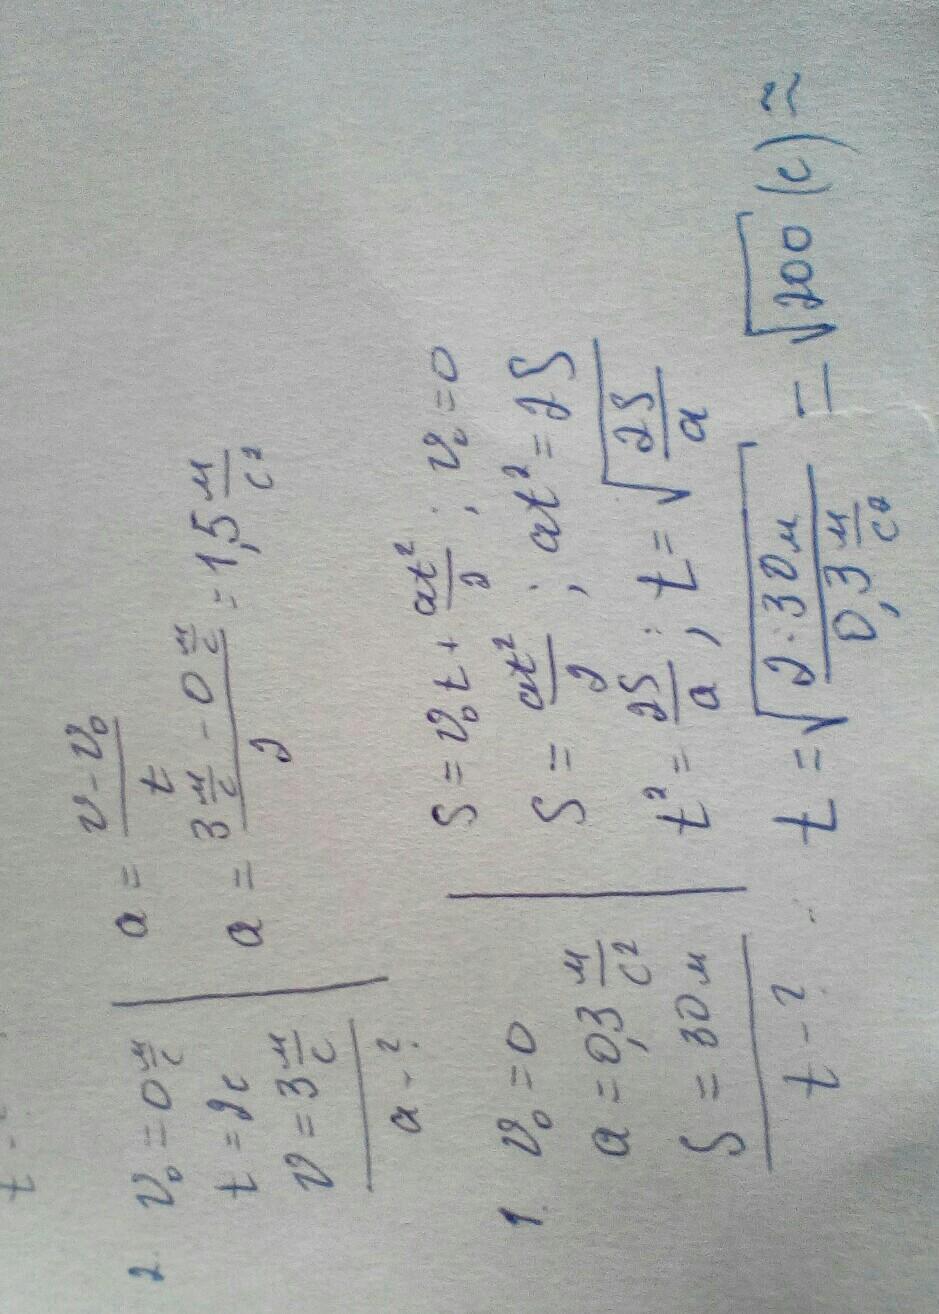 t -
2. v₀ = 0 м/с
t = 2с
v = 3 м/с
a - ?
a = (v - v₀)/t
a = (3 м/с - 0 м/с)/2 = 1,5 м/с²
1. v₀ = 0
a = 0,3 м/с²
S = 30 м
t - ?
S = v₀t + at²/2 ; v₀ = 0
S = at²/2 ; at² = 2S
t² = 2S/a ; t = √(2S/a)
t = √(2·30м / 0,3 м/с²) = √200 (с) ≈